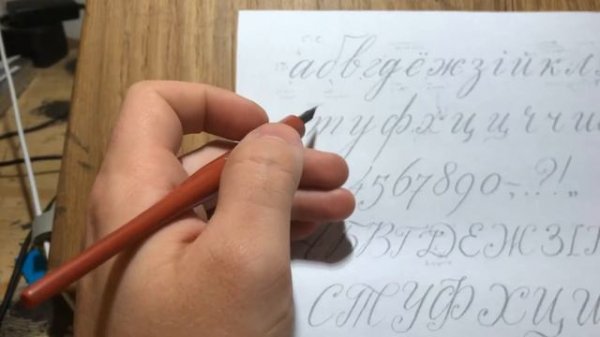 абвгдёжзійкл
туфхцццчч
4567890-;..?!„
БВГДЕЖЗІ
СТУФХЦ